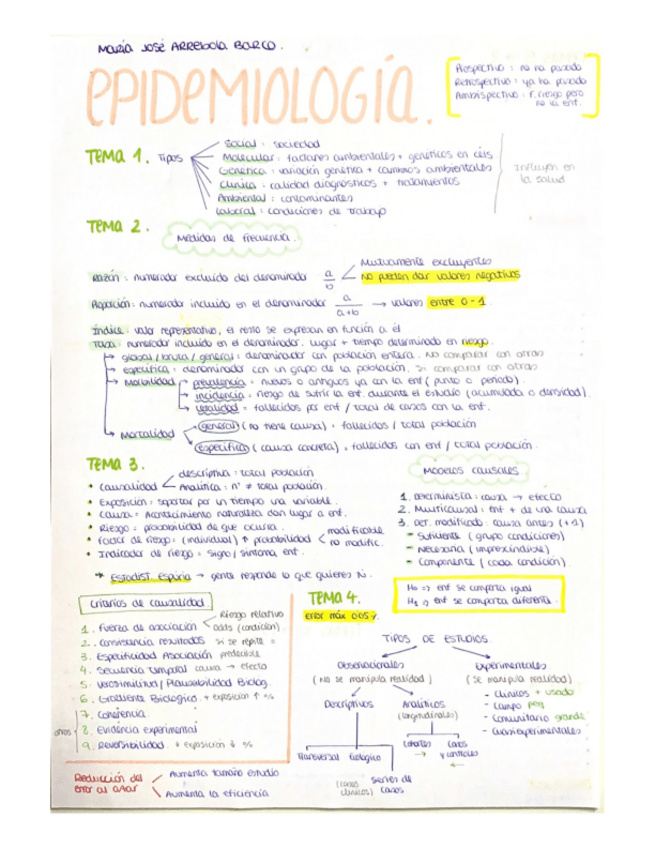 MARÍA JOSÉ ARREBOLA BARCO.
EPIDEMIOLOGÍA.
Prospectivo: no ha pasado
Retrospectivo: ya ha pasado
Ambispectivo: F. riesgo pero no la enf.
TEMA 1. Tipos
Social: sociedad
Molecular: factores ambientales + genéticos en céls
Genética: variación genética + cambios ambientales
Clínica: calidad diagnósticos + tratamientos
Ambiental: contaminantes
Laboral: condiciones de trabajo
Influyen en la salud
TEMA 2.
Medidas de frecuencia.
Razón: numerador excluido del denominador a/b
Mutuamente excluyentes
No pueden dar valores negativos
Proporción: numerador incluido en el denominador a/a+b → valores entre 0-1.
Índice: valor representativo, el resto se expresan en función a él
Tasa: numerador incluido en el denominador. Lugar + tiempo determinado en riesgo.
global/bruta/general: denominador con población entera. No comparar con otras
específica: denominador con un grupo de la población. Sí comparar con otras
Morbilidad
prevalencia = nuevos o antiguos ya con la enf (punto o periodo).
incidencia: riesgo de sufrir la enf. durante el estudio (acumulada o densidad).
letalidad = fallecidos por enf / total de casos con la enf.
Mortalidad
general (no tiene causa) = fallecidos / total población
específica (causa concreta) = fallecidos con enf / total población
TEMA 3.
• Causalidad
descriptiva: total población
Analítica: nº ≠ total población
• Exposición: soportar por un tiempo una variable.
• Causa = Acontecimiento naturaleza dan lugar a enf.
• Riesgo = probabilidad de que ocurra.
• Factor de riesgo = (individual) ↑ probabilidad
modificable
no modific.
• Indicador de riesgo = signo/síntoma, enf.
* Estadíst. espuria → gente responde lo que quieres ∴
Modelos causales
1. Determinista: causa → efecto
2. Multicausal: enf + de una causa
3. Det. modificado: causa antes (+1)
- Suficiente (grupo condiciones)
- Necesaria (imprescindible)
- Componente (cada condición).
H₀ => enf se comporta igual
H₁ => enf se comporta diferente.
Criterios de causalidad.
1. Fuerza de asociación
Riesgo relativo
odds (condición).
2. Consistencia resultados si se repite =
3. Especificidad Asociación predecible
4. Secuencia temporal causa → efecto
5. Verosimilitud/Plausibilidad Biológ.
6. Gradiente Biológico. + exposición ↑ %
otros
7. Coherencia.
8. Evidencia experimental
9. Reversibilidad. + exposición ↓ %
Reducción del error al azar
Aumenta tamaño estudio
Aumenta la eficiencia
TEMA 4.
error máx 0.05
TIPOS DE ESTUDIOS.
Observacionales
(No se manipula realidad)
Descriptivos
Transversal
Ecológico
Series de casos
(casos clínicos)
Analíticos
(longitudinales)
Cohortes
→
Casos y controles
←
Experimentales
(Se manipula realidad)
- Clínicos + usado
- Campo peq
- Comunitario grande
- Cuasiexperimentales